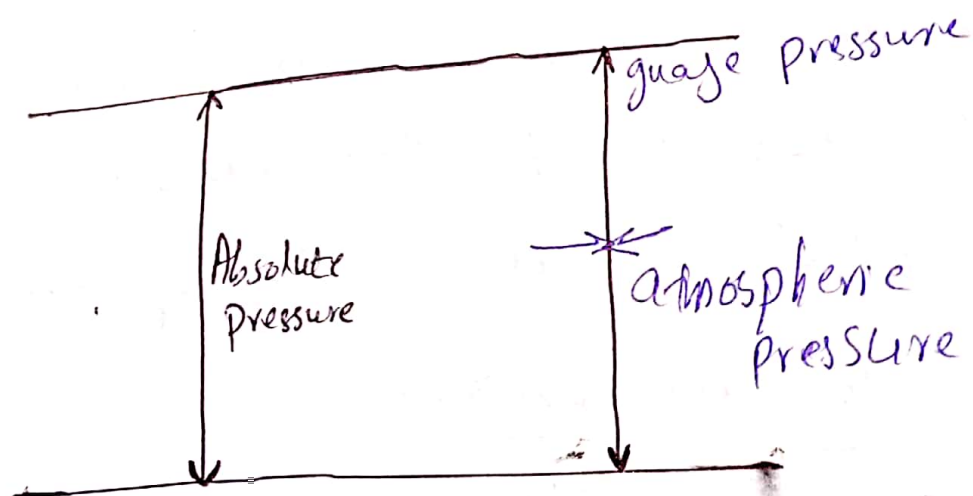 guage pressure
Absolute
pressure
atmospheric
pressure